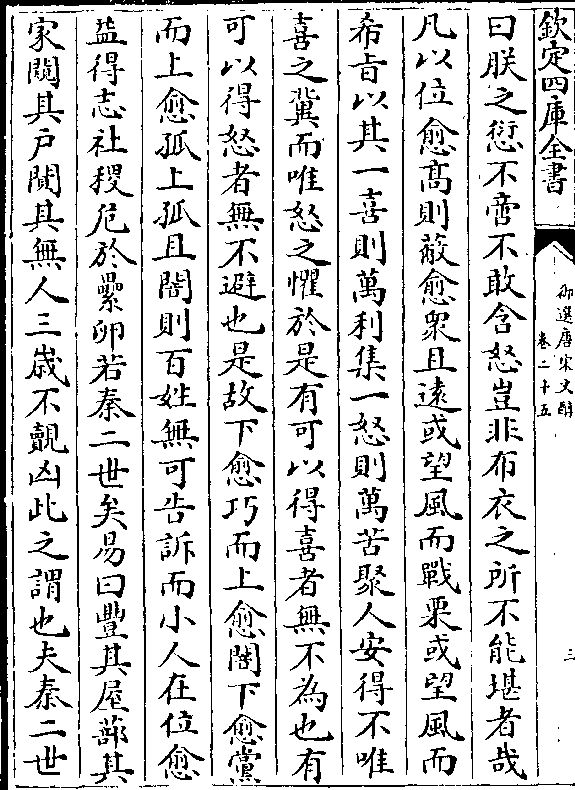 欽定四庫全書
御選唐宋文醇
卷二十五
三
曰朕之愆不啻不敢含怒豈非布衣之所不能堪者哉
凡以位愈髙則蔽愈衆且逺或望風而戰栗或望風而
希㫖以其一喜則萬利集一怒則萬苦聚人安得不唯
喜之冀而唯怒之懼於是有可以得喜者無不為也有
可以得怒者無不避也是故下愈巧而上愈闇下愈黨
而上愈孤上孤且闇則百姓無可告訴而小人在位愈
益得志社稷危於纍卵若秦二世矣易曰豐其屋蔀其
家闚其戸闃其無人三嵗不覿凶此之謂也夫秦二世